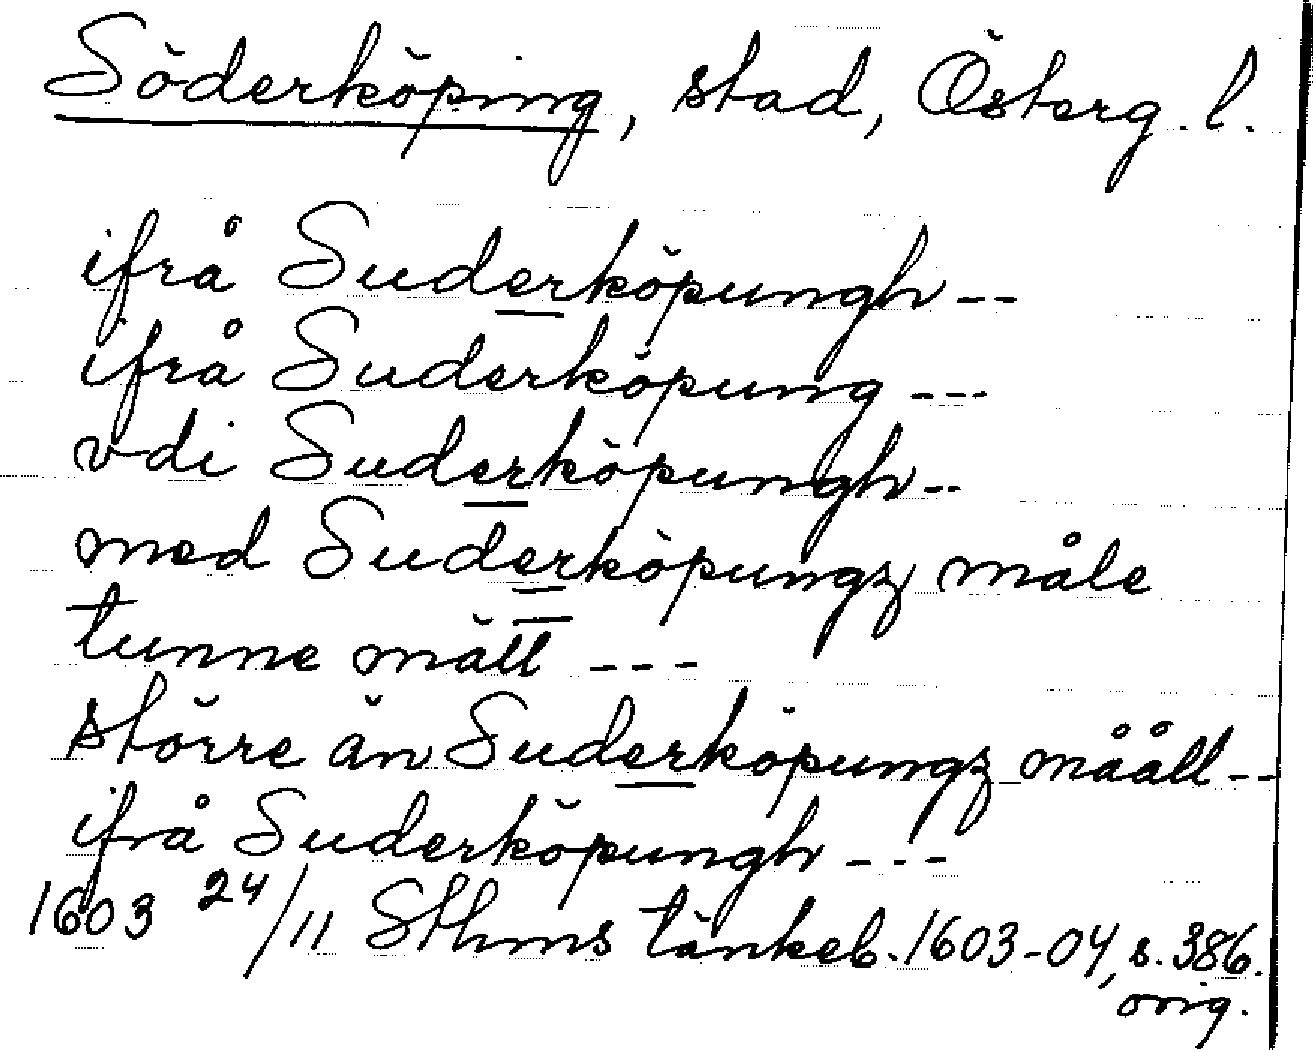 Söderköping, stad, Österg. l.
ifrå Suderköpungh --
ifrå Suderköpung ---
vdi Suderköpungh --
med Suderköpungz måle
tunne måll ---
större än Suderköpungz mååll --
ifrå Suderköpungh ---
1603 24/11 Sthms tänkeb. 1603-04, s. 386.
orig.